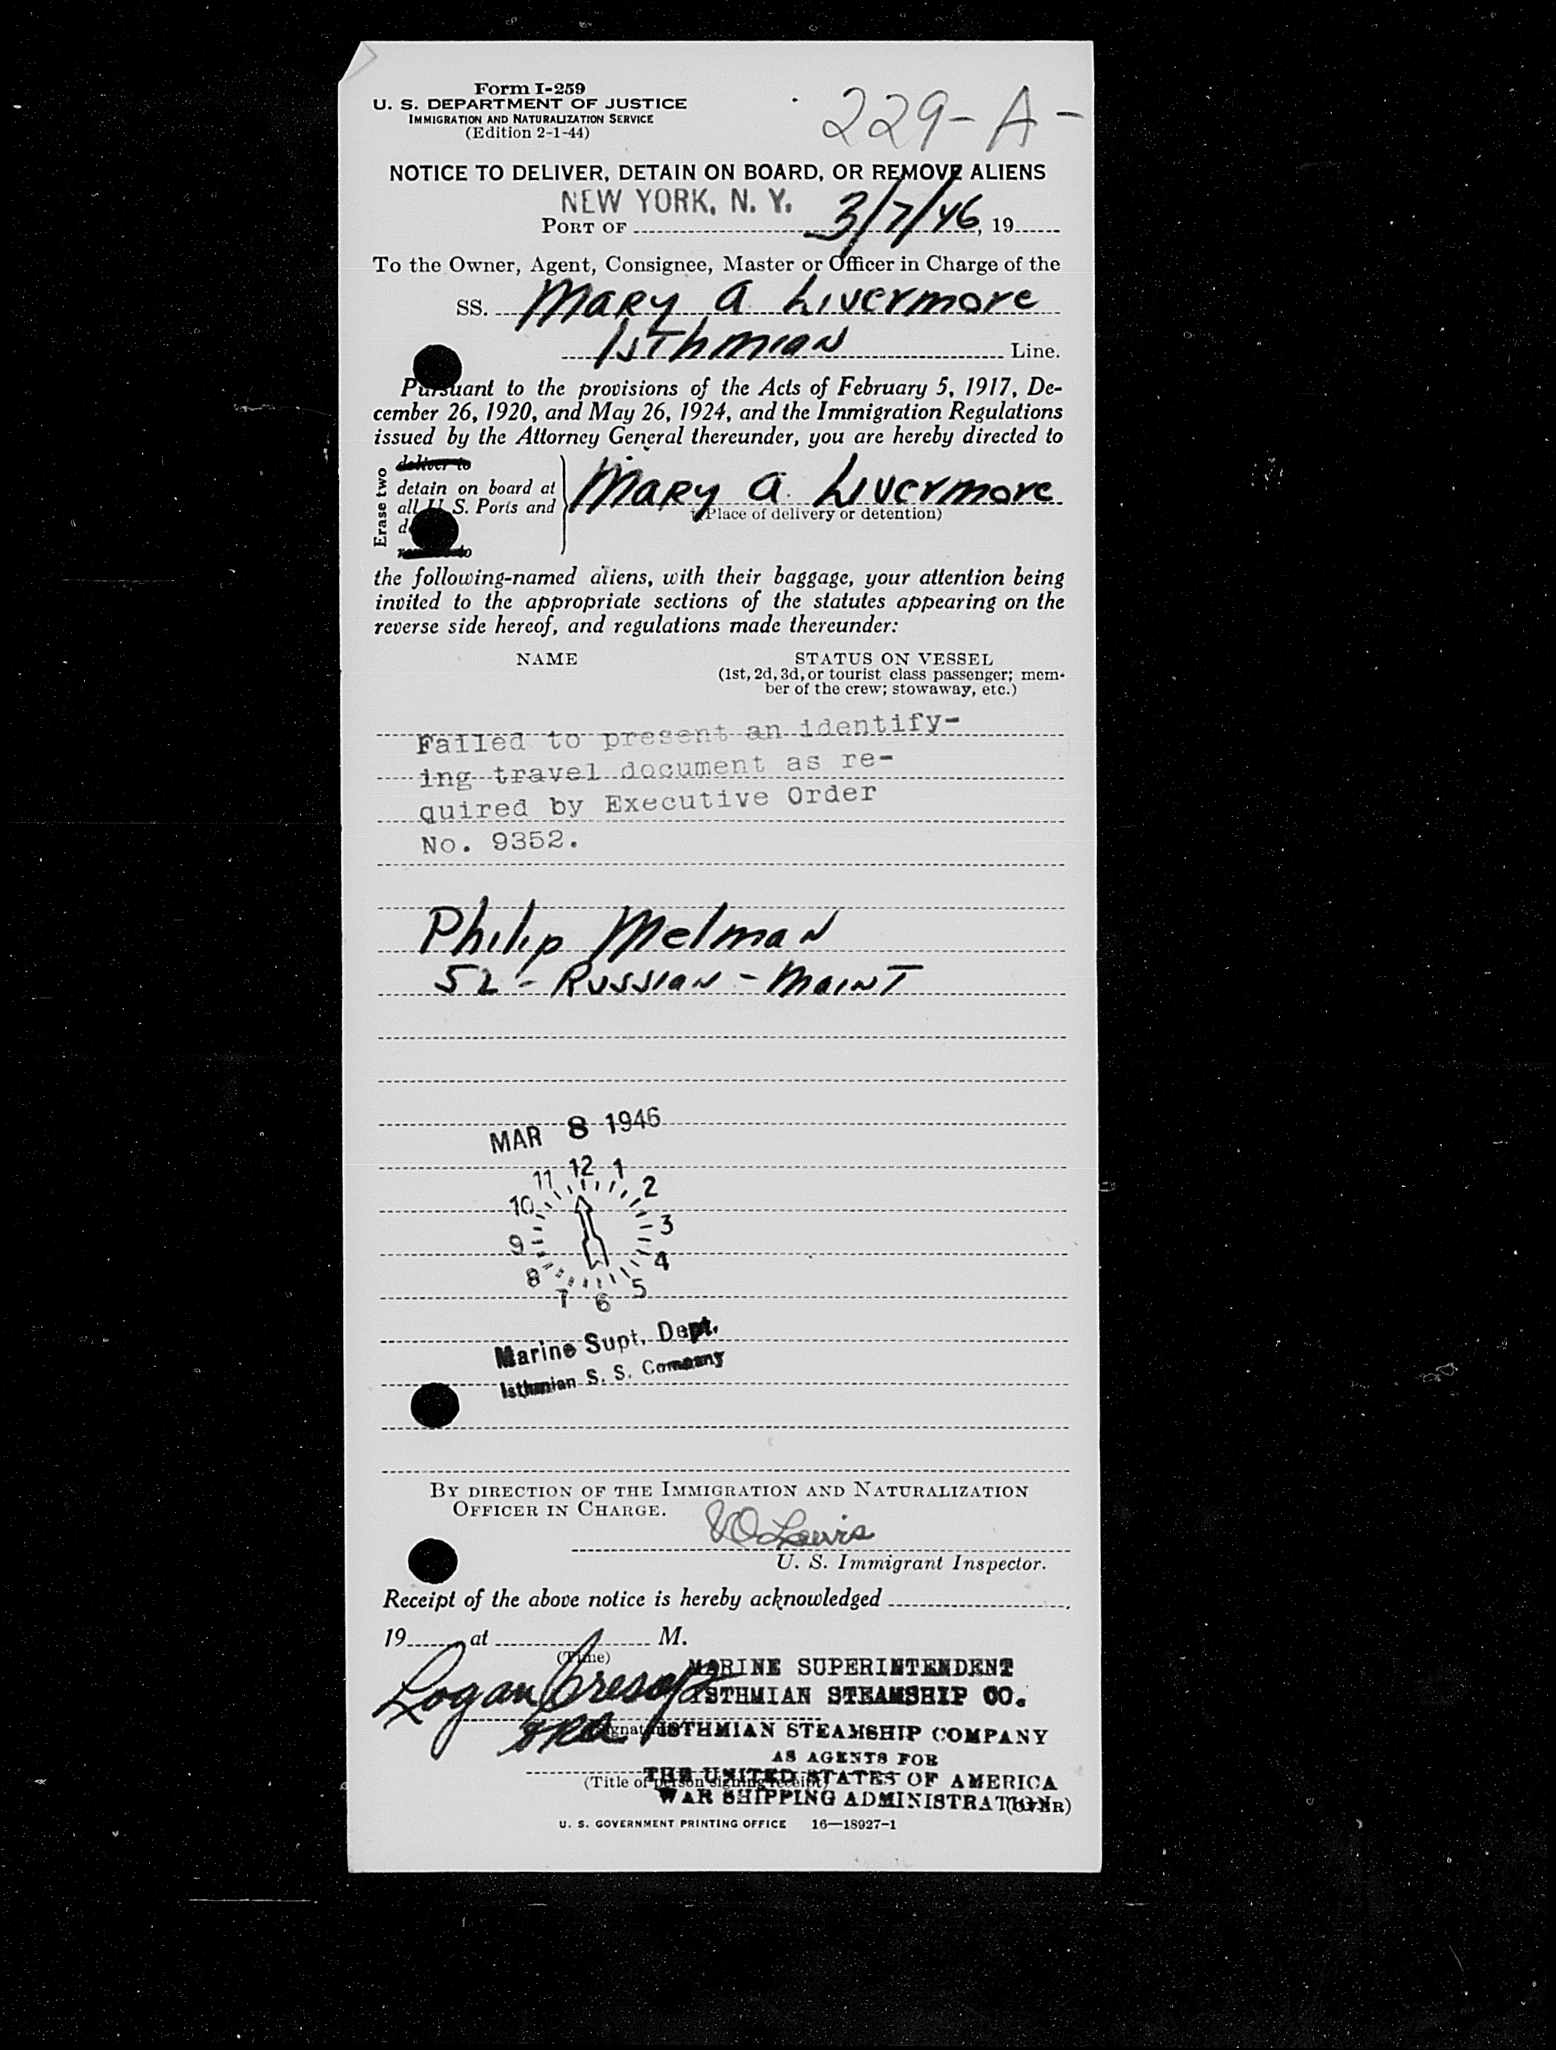 Form I-259
U. S. DEPARTMENT OF JUSTICE
IMMIGRATION AND NATURALIZATION SERVICE
(Edition 2-1-44)
229-A-
NOTICE TO DELIVER, DETAIN ON BOARD, OR REMOVE ALIENS
NEW YORK, N. Y.
PORT OF 3/7/46, 19
To the Owner, Agent, Consignee, Master or Officer in Charge of the
SS. Mary A Livermore
Isthmian Line.
Pursuant to the provisions of the Acts of February 5, 1917, De-
cember 26, 1920, and May 26, 1924, and the Immigration Regulations
issued by the Attorney General thereunder, you are hereby directed to
Erase two
deliver to
detain on board at
all U. S. Ports and
Mary A. Livermore
(Place of delivery or detention)
the following-named aliens, with their baggage, your attention being
invited to the appropriate sections of the statutes appearing on the
reverse side hereof, and regulations made thereunder:
NAME
STATUS ON VESSEL
(1st, 2d, 3d, or tourist class passenger; mem-
ber of the crew; stowaway, etc.)
Failed to present an identify-
ing travel document as re-
quired by Executive Order
No. 9352.
Philip Melman
52 - Russian - Maint
MAR 8 1946
12 1 2 3 4 5 6 7 8 9 10 11
Marine Supt. Dept.
Isthmian S. S. Company
BY DIRECTION OF THE IMMIGRATION AND NATURALIZATION
OFFICER IN CHARGE.
Lewis
U. S. Immigrant Inspector.
Receipt of the above notice is hereby acknowledged
19 at M.
(Time)
Logan Cresap
MARINE SUPERINTENDENT
ISTHMIAN STEAMSHIP CO.
ISTHMIAN STEAMSHIP COMPANY
AS AGENTS FOR
THE UNITED STATES OF AMERICA
(Title of person signing receipt)
WAR SHIPPING ADMINISTRATION
(OVER)
U. S. GOVERNMENT PRINTING OFFICE 16—18927-1